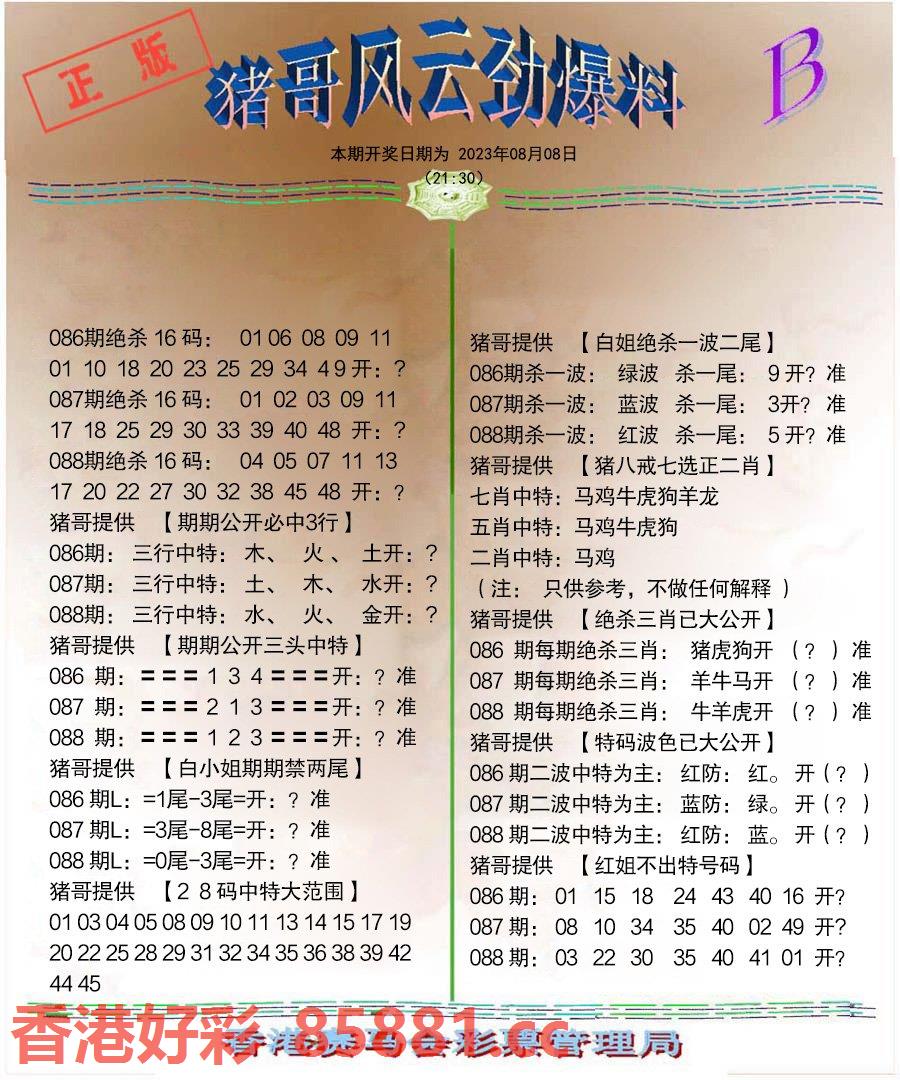 正版
猪哥风云劲爆料
B
本期开奖日期为 2023年08月08日
(21:30)
086期绝杀16码: 01 06 08 09 11
01 10 18 20 23 25 29 34 49开:?
087期绝杀16码: 01 02 03 09 11
17 18 25 29 30 33 39 40 48 开:?
088期绝杀16码: 04 05 07 11 13
17 20 22 27 30 32 38 45 48 开:?
猪哥提供 【期期公开必中3行】
086期: 三行中特: 木、 火 、 土开:?
087期: 三行中特: 土、 木、 水开:?
088期: 三行中特: 水、 火、 金开:?
猪哥提供 【期期公开三头中特】
086 期:===1 3 4===开:? 准
087 期:===2 1 3===开:? 准
088 期:===1 2 3===开:? 准
猪哥提供 【白小姐期期禁两尾】
086期L:=1尾-3尾=开:? 准
087期L:=3尾-8尾=开:? 准
088期L:=0尾-3尾=开:? 准
猪哥提供 【28码中特大范围】
01 03 04 05 08 09 10 11 13 14 15 17 19
20 22 25 28 29 31 32 34 35 36 38 39 42
44 45
猪哥提供 【白姐绝杀一波二尾】
086期杀一波: 绿波 杀一尾: 9开? 准
087期杀一波: 蓝波 杀一尾: 3开? 准
088期杀一波: 红波 杀一尾: 5开? 准
猪哥提供 【猪八戒七选正二肖】
七肖中特:马鸡牛虎狗羊龙
五肖中特:马鸡牛虎狗
二肖中特:马鸡
(注: 只供参考,不做任何解释 )
猪哥提供 【绝杀三肖已大公开】
086 期每期绝杀三肖: 猪虎狗开 (? )准
087 期每期绝杀三肖: 羊牛马开 (? )准
088 期每期绝杀三肖: 牛羊虎开 (? )准
猪哥提供 【特码波色已大公开】
086期二波中特为主:红防:红。开(? )
087期二波中特为主:蓝防:绿。开(? )
088期二波中特为主:红防:蓝。开(? )
猪哥提供 【红姐不出特号码】
086期: 01 15 18 24 43 40 16 开?
087期: 08 10 34 35 40 02 49 开?
088期: 03 22 30 35 40 41 01 开?
香港好彩 85881.cc
香港赛马会彩票管理局